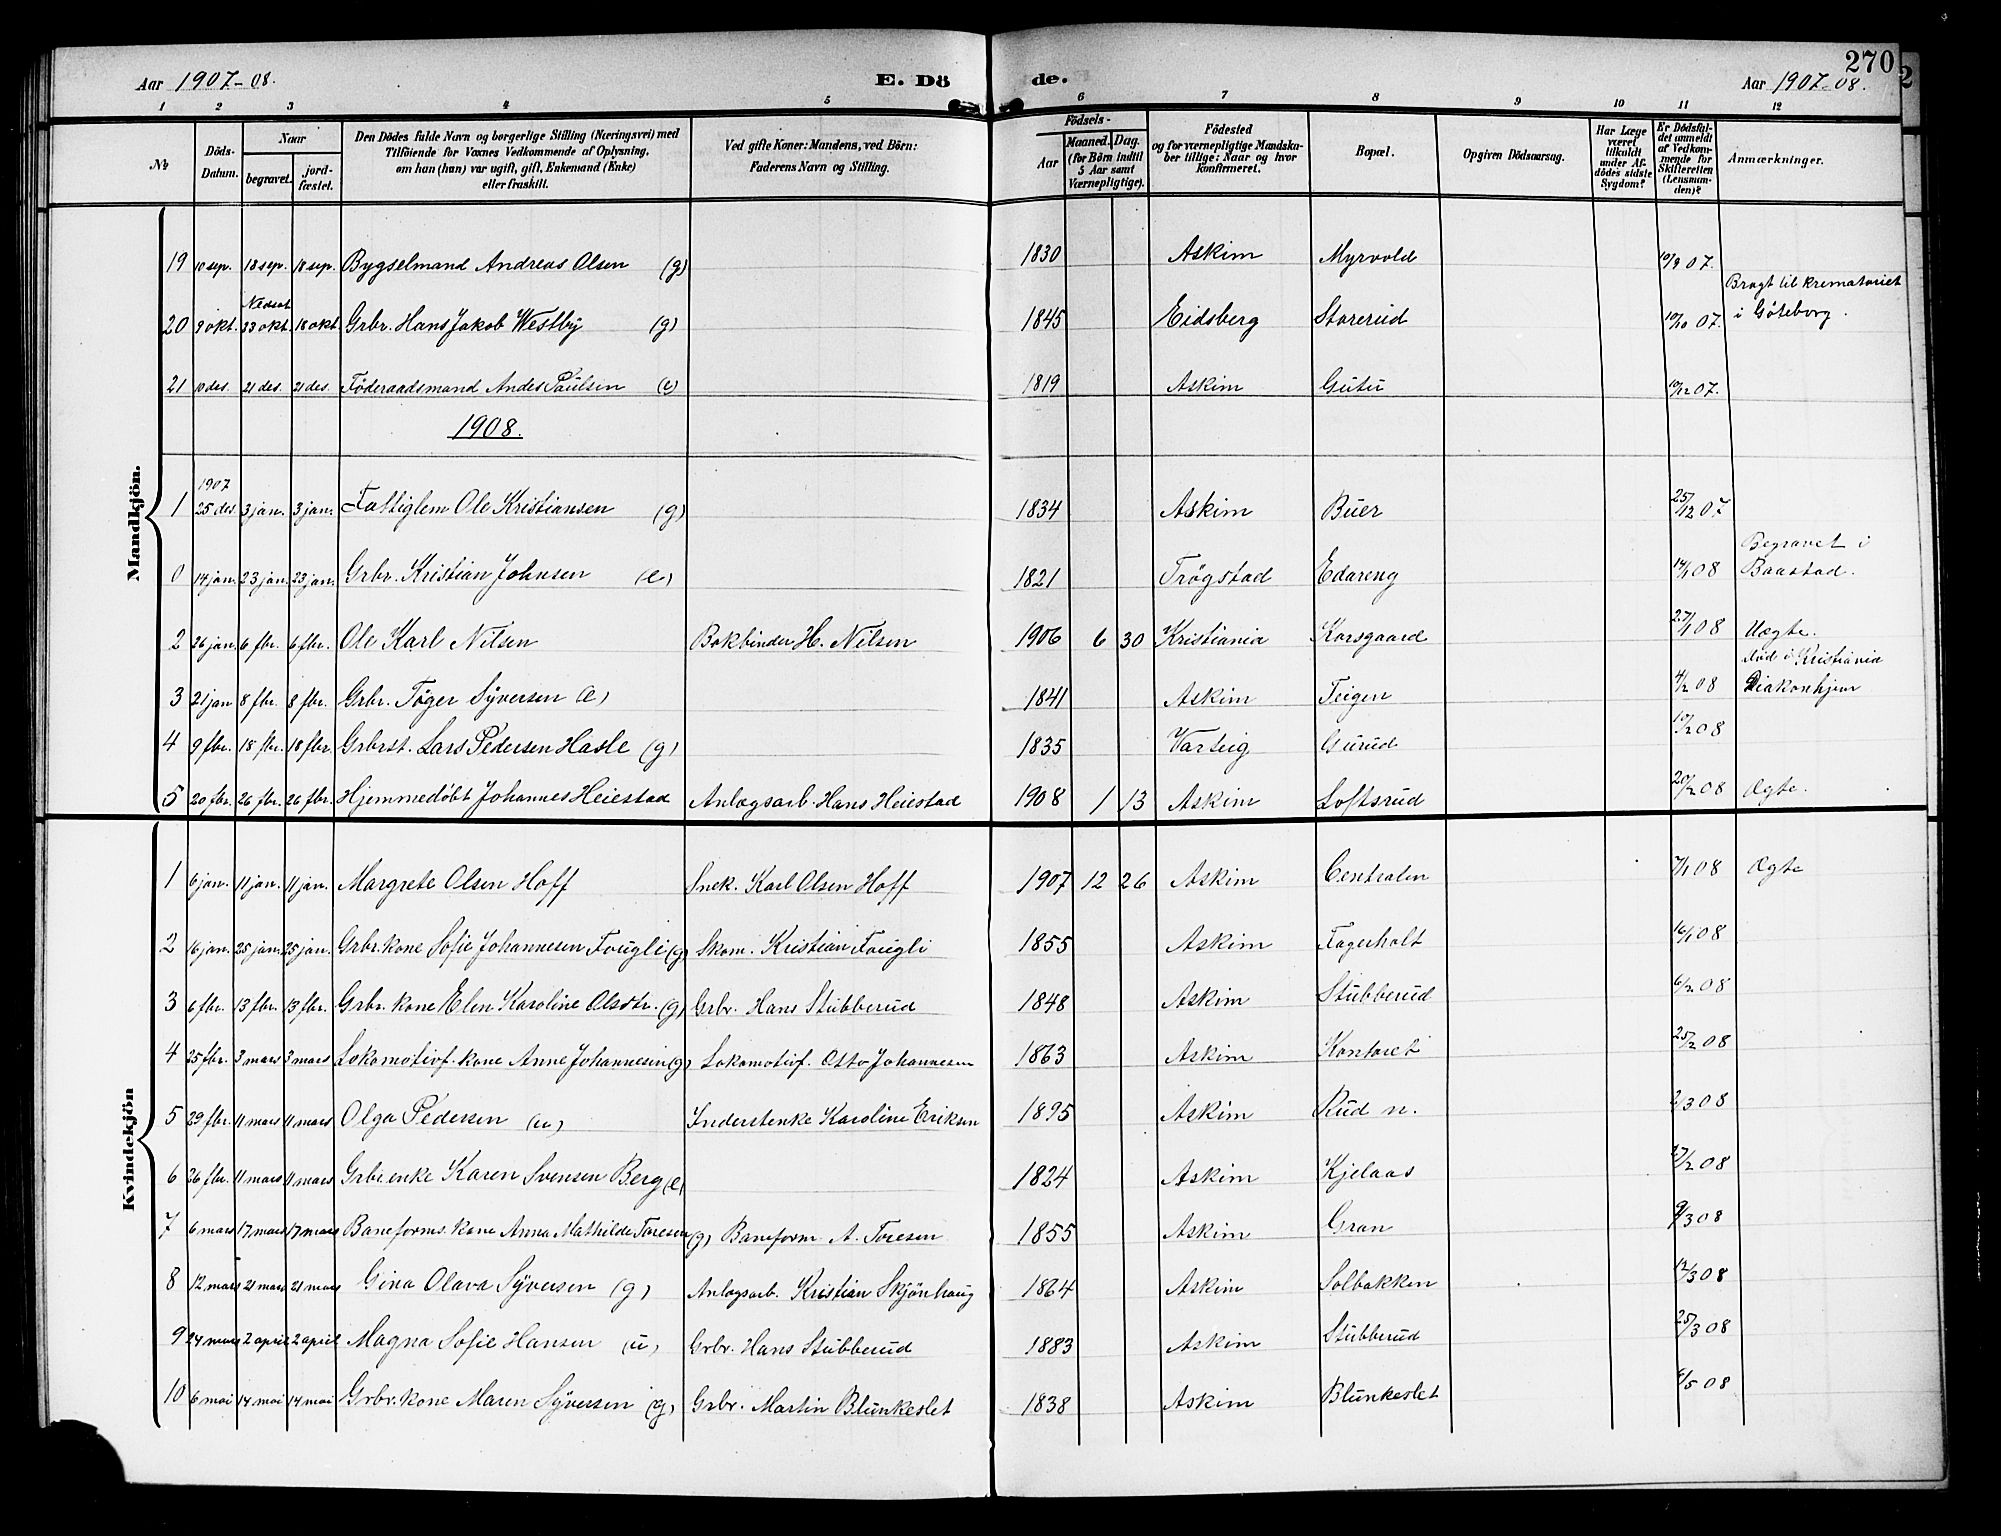 270
Aar 1907-08. E. Dö de. Aar 1907-08.
1 2 3 4 5 6 7 8 9 10 11 12
No
Döds-Datum.
Naar
begravet.
jord-
fæstet.
Den Dödes fulde Navn og borgerlige Stilling (Næringsvei) med
Tilföiende for Voxnes Vedkommende af Oplysning,
om han (hun) var ugift, gift, Enkemand (Enke)
eller fraskilt.
Ved gifte Koner: Mandens, ved Börn:
Faderens Navn og Stilling.
Födsels-
Aar
Maaned. Dag.
(for Börn indtil
5 Aar samt
Værnepligtige).
Födested
og for værnepligtige Mandska-
ber tillige: Naar og hvor
konfirmeret.
Bopæl.
Opgiven Dödsaarsag.
Har Læge
været
tilkaldt
under Af-
dödes sidste
Sygdom?
Er Dödsfal-
det anmeldt
af Vedkom-
mende for
Skifteretten
(Lensman-
den)?
Anmærkninger.
Mandkjön.
19 10 sep. 18 sep. 18 sep. Bygselmand Andreas Olsen (g) 1830 Askim Myrvold 10/9 07.
20 9 okt. Nedsat 23 okt. 18 okt. Grbr. Hans Jakob Westby (g) 1845 Eidsberg Storerud 10/10 07. Bragt til krematoriet
i Göteborg.
21 10 des. 21 des. 21 des. Föderaadsmand Andes Paulsen (e) 1819 Askim Gutu 10/12 07.
1908.
1 1907 25 des. 3 jan. 3 jan. Fattiglem Ole Kristiansen (g) 1834 Askim Buer 25/12 07
0 14 jan. 23 jan. 23 jan. Grbr. Kristian Johnsen (e) 1821 Trögstad Edareng 14/1 08 Begravet i
Baastad.
2 26 jan. 6 fbr. 6 fbr. Ole Karl Nilsen Bokbinder H. Nilsen 1906 6 30 Kristiania Korsgaard 27/1 08 Uægte.
3 21 jan 8 fbr. 8 fbr. Grbr. Töger Syversen (e) 1841 Askim Teigen 4/2 08 död i Kristiania
Diakonhjem
4 9 fbr. 18 fbr. 18 fbr. Grbrst. Lars Pedersen Hasle (g) 1835 Varteig Gurud 10/2 08
5 20 fbr. 26 fbr. 26 fbr. Hjemmedöbt Johannes Heiestad Anlægsarb. Hans Heiestad 1908 1 13 Askim Loftsrud 20/2 08 Ægte.
Kvindekjön
1 6 jan. 11 jan. 11 jan. Margrete Olsen Hoff Snek. Karl Olsen Hoff 1907 12 26 Askim Centralen 7/1 08 Ægte
2 16 jan. 25 jan. 25 jan. Grbr. kone Sofie Johannesen Fougli (g) Skom. Kristian Fougli 1855 Askim Fagerholt 16/1 08
3 6 fbr. 13 fbr. 13 fbr. Grbr. kone Elen Karoline Olsdtr. (g) Grbr. Hans Stubberud 1848 Askim Stubberud 6/2 08
4 25 fbr. 3 mars 3 mars Lokomotivf. kone Anne Johannesen (g) Lokomotivf. Otto Johannesen 1863 Askim Kontoret 25/2 08
5 29 fbr. 11 mars 11 mars Olga Pedersen (u) Inderstenke Karoline Eriksen 1895 Askim Rud n. 2/3 08
6 26 fbr. 11 mars 11 mars Grbr. enke Karen Svensen Berg (e) 1824 Askim Kjelaas 27/2 08
7 6 mars 17 mars 17 mars Baneforms. kone Anna Mathilde Toresen (g) Baneform A. Toresen 1855 Askim Gran 9/3 08
8 12 mars 21 mars 21 mars Gina Olava Syversen (g) Anlægsarb. Kristian Skjönhaug 1864 Askim Solbakken 12/3 08
9 24 mars 2 april 2 april Magna Sofie Hansen (u) Grbr. Hans Stubberud 1883 Askim Stubberud 25/3 08
10 6 mai 14 mai 14 mai Grbr. kone Maren Syversen (g) Grbr. Martin Blunkeslet 1838 Askim Blunkeslet 6/5 08